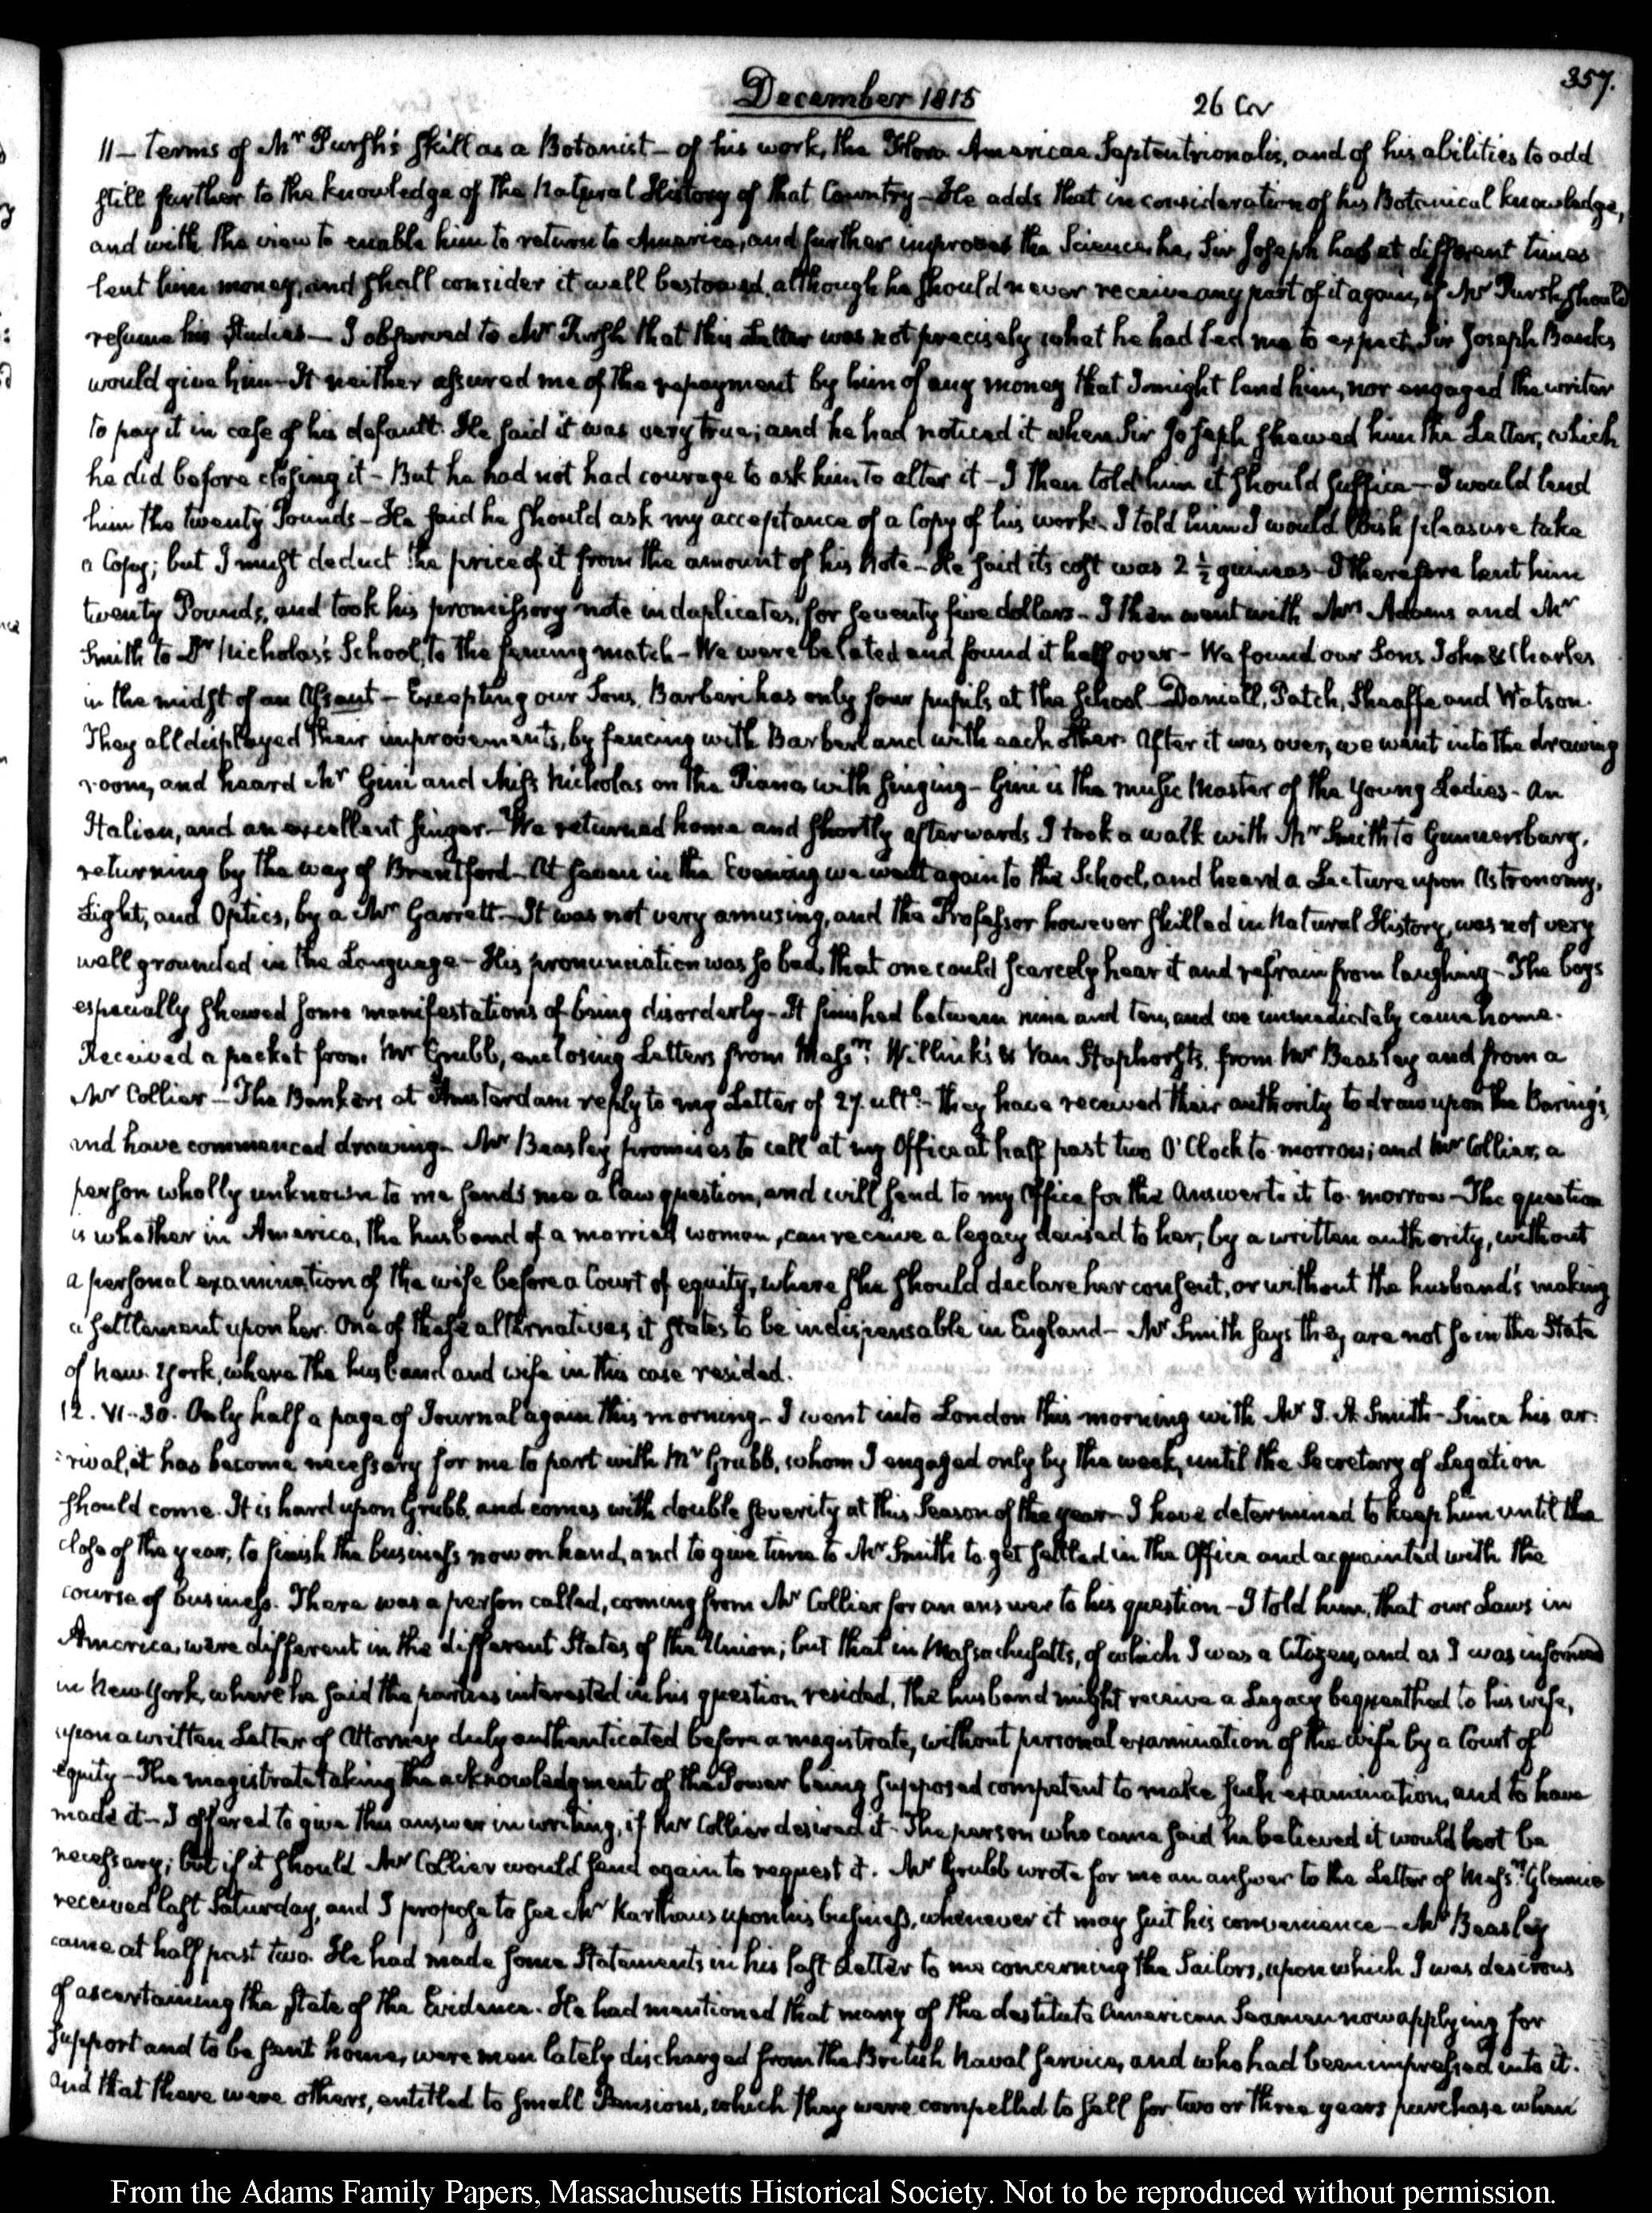 357.
December 1815
26 Cov
11 — terms of Mr Pursh's skill as a Botanist — of his work, the Flora Americae Septentrionalis, and of his abilities to add
still further to the knowledge of the Natural History of that Country — He adds that in consideration of his Botanical knowledge,
and with the view to enable him to return to America, and further improve the Science, he, Sir Joseph has at different times
lent him money, and shall consider it well bestowed, although he should never receive any part of it again, if Mr Pursh should
resume his studies — I observed to Mr Pursh that this Letter was not precisely what he had led me to expect Sir Joseph Banks
would give him — It neither assured me of the repayment by him of any money that I might lend him, nor engaged the writer
to pay it in case of his default. He said it was very true; and he had noticed it when Sir Joseph shewed him the Letter, which
he did before closing it — But he had not had courage to ask him to alter it — I then told him it should suffice — I would lend
him the twenty Pounds — He said he should ask my acceptance of a Copy of his work. I told him I would with pleasure take
a Copy; but I must deduct the price of it from the amount of his Note — He said its cost was 2 ½ guineas — I therefore lent him
twenty Pounds, and took his promissory note in duplicates, for seventy five dollars — I then went with Mrs Adams and Mr
Smith to Dr Nicholas's School, to the fencing match — We were belated and found it half over — We found our Sons John & Charles
in the midst of an Assaut — Excepting our Sons, Barberi has only four pupils at the School — Daniell, Patch, Shaaffe and Watson.
They all displayed their improvements, by fencing with Barberi and with each other. After it was over, we went into the drawing
room, and heard Mr Gini and Miss Nicholas on the Piano, with singing — Gini is the music Master of the young Ladies — an
Italian, and an excellent singer. — We returned home and shortly afterwards I took a walk with Mr Smith to Gunnersbury,
returning by the way of Brentford — At seven in the Evening we went again to the School, and heard a Lecture upon Astronomy,
Light, and Optics, by a Mr Garrett — It was not very amusing, and the Professor however skilled in Natural History, was not very
well grounded in the Language — His pronunciation was so bad, that one could scarcely hear it and refrain from laughing — The boys
especially shewed some manifestations of being disorderly — It finished between nine and ten, and we immediately came home.
Received a packet from Mr Grubb, enclosing Letters from Messrs Willink's & Van Staphorsts, from Mr Beasley and from a
Mr Collier — The Bankers at Amsterdam reply to my Letter of 27. ulto — they have received their authority to draw upon the Barings,
and have commenced drawing — Mr Beasley promises to call at my Office at half past two O'Clock to-morrow; and Mr Collier, a
person wholly unknown to me sends me a law question, and will send to my Office for the Answer to it to-morrow — The question
is whether in America, the husband of a married woman, can receive a legacy devised to her, by a written authority, without
a personal examination of the wife before a Court of equity, where she should declare her consent, or without the husband's making
a settlement upon her. One of these alternatives it states to be indispensable in England — Mr Smith says they are not so in the State
of New-York, where the husband and wife in this case resided.
12. VI-30. Only half a page of Journal again this morning — I went into London this morning with Mr J. A. Smith — Since his ar-
:rival, it has become necessary for me to part with Mr Grubb, whom I engaged only by the week, until the Secretary of Legation
should come. It is hard upon Grubb, and comes with double severity at this Season of the year — I have determined to keep him until the
close of the year, to finish the business now on hand, and to give time to Mr Smith to get settled in the Office and acquainted with the
course of business. There was a person called, coming from Mr Collier for an answer to his question — I told him, that our Laws in
America, were different in the different States of the Union; but that in Massachusetts, of which I was a Citizen, and as I was informed
in New York, where he said the parties interested in his question resided, the husband might receive a Legacy bequeathed to his wife,
upon a written Letter of Attorney duly authenticated before a magistrate, without personal examination of the wife by a Court of
equity — The magistrate taking the acknowledgment of the Power being supposed competent to make such examination, and to have
made it — I offered to give this answer in writing, if Mr Collier desired it — The person who came said he believed it would not be
necessary; but if it should Mr Collier would send again to request it. Mr Grubb wrote for me an answer to the Letter of Messrs Glennie
received last Saturday, and I propose to see Mr Karthaus upon his business, whenever it may suit his convenience — Mr Beasley
came at half past two. He had made some Statements in his last Letter to me concerning the Sailors, upon which I was desirous
of ascertaining the state of the Evidence. He had mentioned that many of the destitute American Seamen now applying for
support and to be sent home, were men lately discharged from the British Naval service, and who had been impressed into it.
And that there were others, entitled to small Pensions, which they were compelled to sell for two or three years purchase when
From the Adams Family Papers, Massachusetts Historical Society. Not to be reproduced without permission.